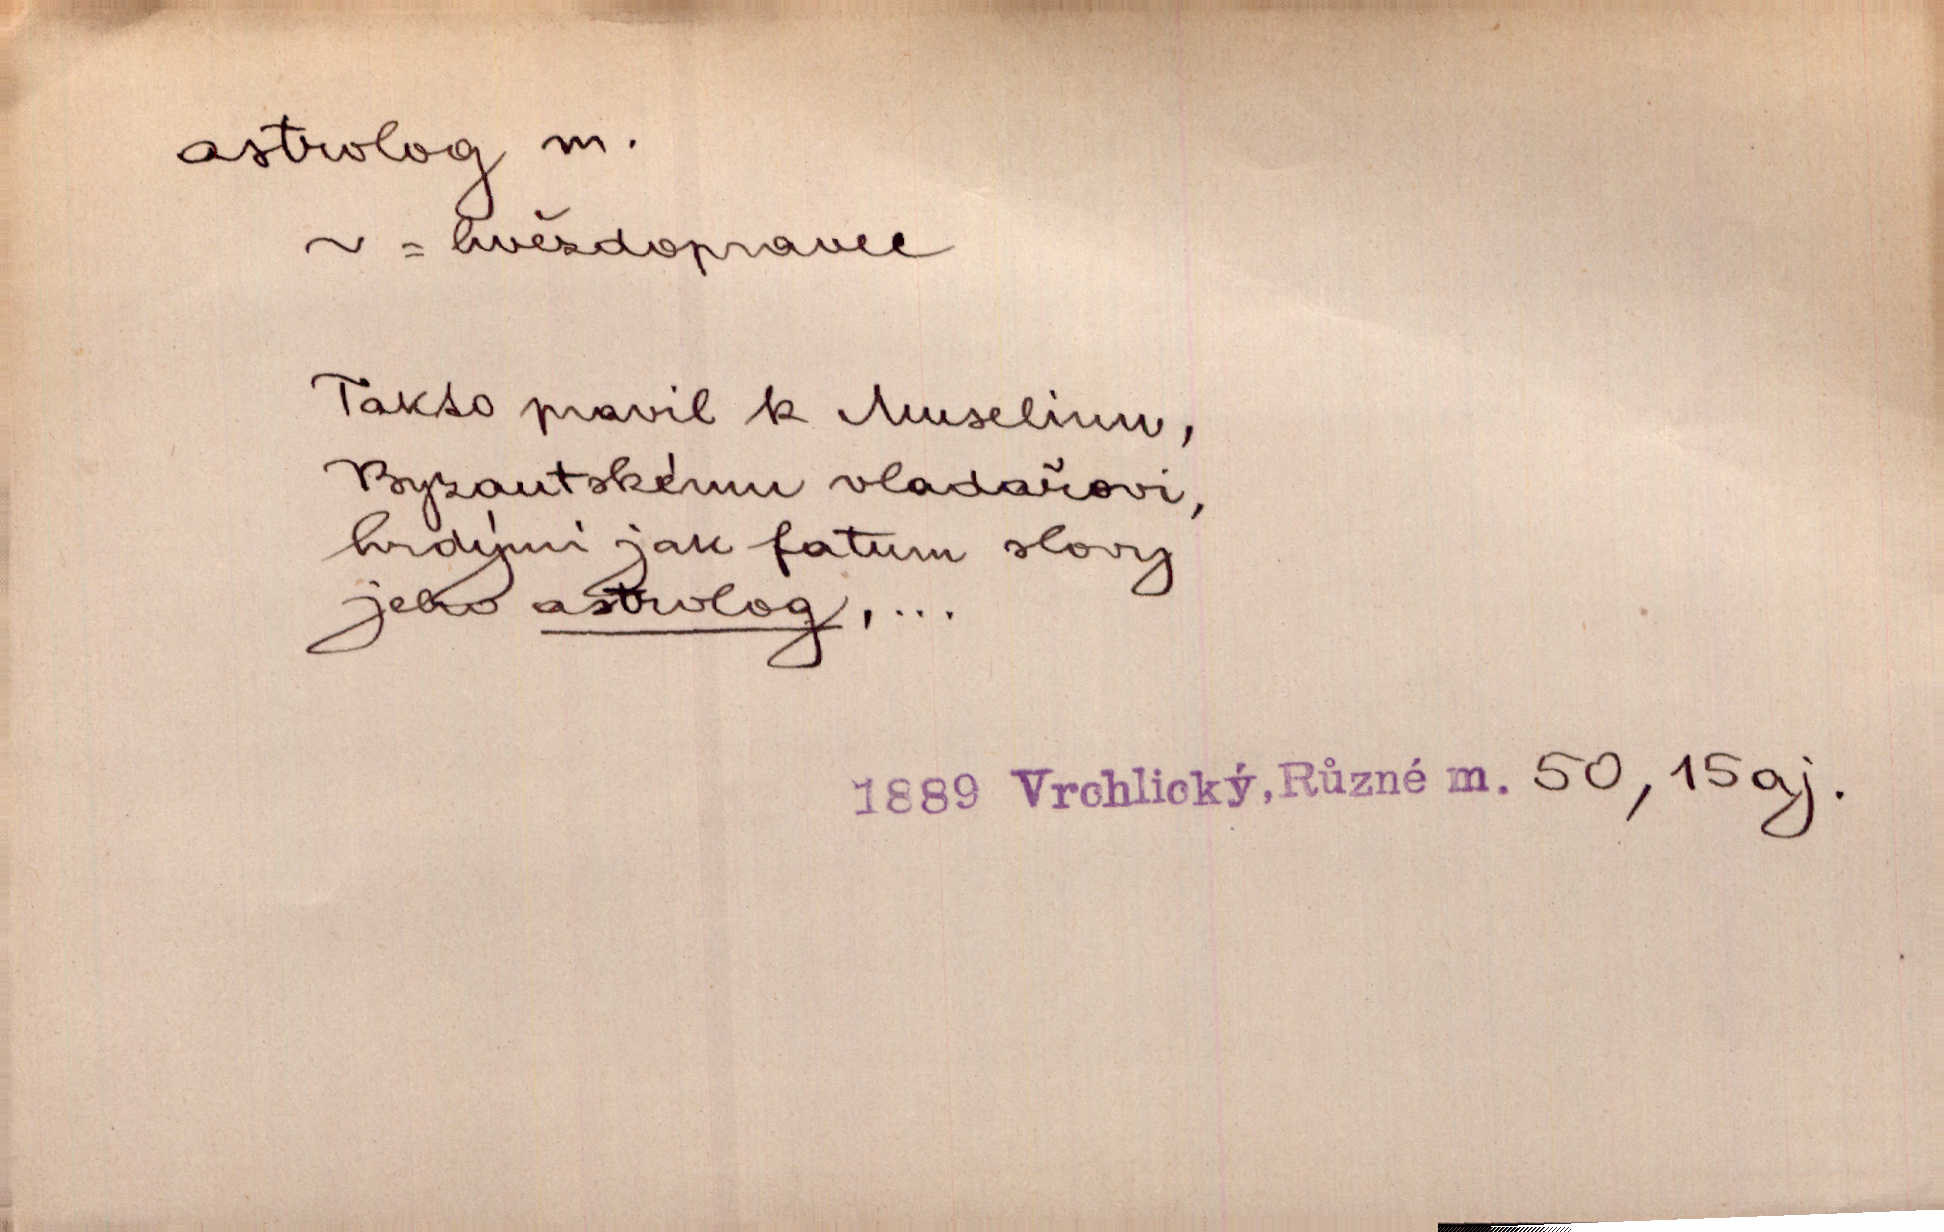 astrolog m.
~ = hvězdopravec
Takto pravil k Muselimu,
Byzantskému vladařovi,
hrdými jak fatum slovy
jeho astrolog, ...
1889 Vrchlický, Různé m. 50, 15 aj.